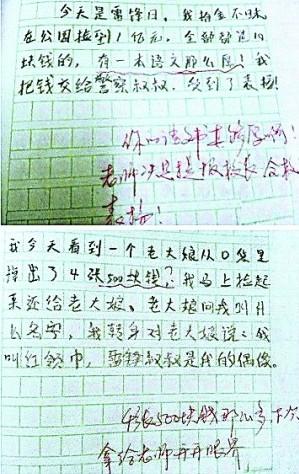 今天是雷锋日，我拾金不昧
在公园捡到1亿元，全部都是10
块钱的，有一本语文那么厚！我
把钱交给警察叔叔，受到了表扬！
你的语文书真够厚啊！
老师决定提报校长合校
表扬！
我今天看到一个老大娘从口袋里
掉出了4张500块钱？我马上捡起
来还给老大娘。老大娘问我叫什
么名字，我转身对老大娘说：我
叫红领巾，雷锋叔叔是我的偶像。
4张500块钱那么多，下次
拿给老师开开眼界